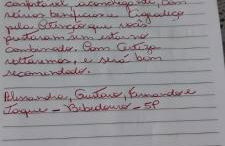 confortável, aconchegante, com
pela atenção que nos
prestaram sem estar no
combinado. Com certeza
voltaremos, e será bem
recomendado.
Alessandra, Gustavo, Fernando e
Jaque - Bebedouro - SP